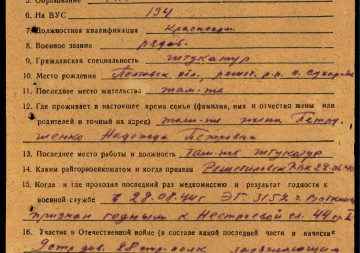 6. На ВУС 134
7. Должностная квалификация
8. Военное звание рядов.
9. Гражданская специальность штукатур
10. Место рождения Полтавск. обл., решет. р-н. с.
11. Последнее место жительства там-же
12. Где проживает в настоящее время семья (фамилия, имя и отчество жены или
родителей и точный адрес) там-же жена Петру
шенко Надежда Петровна
13. Последнее место работы и должность там-же штукатур
14. Каким райгорвоенкоматом и когда призван Решетиловск РВК
15. Когда и где проходил последний раз медкомиссию и результат годности к
военной службе 28.08.44г ЭГ 3152
признан годным к нестроевой сл.
16. Участие в Отечественной войне (в составе какой последней части и в качестве
стр. див. 28 стр. полк